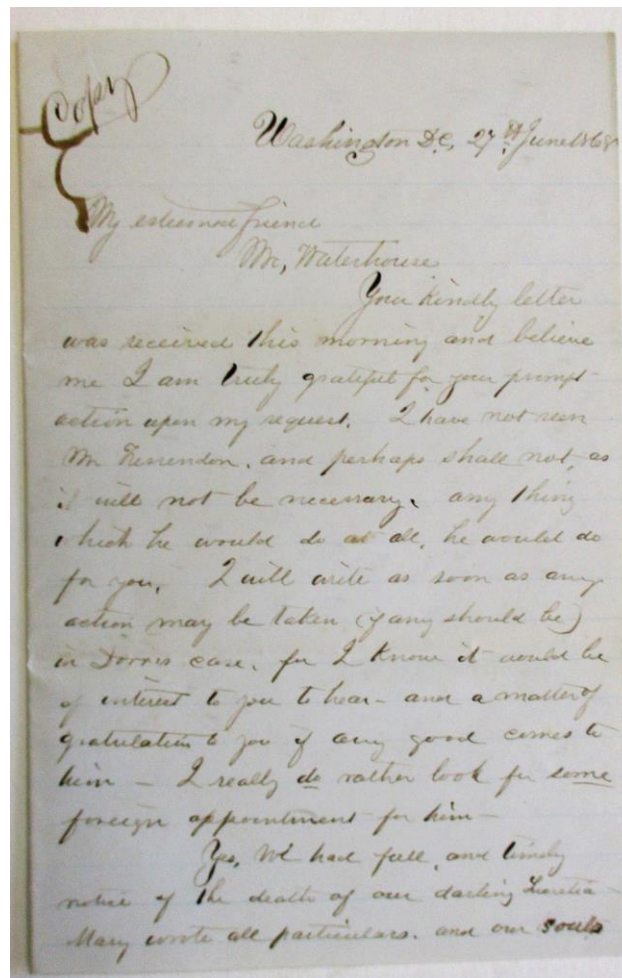 Copy
Washington DC, 27th June 1868
My esteemed friend
Mr, Waterhouse
Your kindly letter
was received this morning and believe
me I am truly grateful for your prompt
action upon my request. I have not seen
Mr Fessendon, and perhaps shall not, as
it will not be necessary. any thing
which he would do at all, he would do
for you. I will write as soon as any
action may be taken (if any should be)
in Dorrs case, for I know it would be
of interest to you to hear - and a matter of
gratulation to you if any good comes to
him - I really do rather look for some
foreign appointment for him -
Yes, we had full, and timely
notice of the death of our darling Lucretia
Mary wrote all particulars. and our souls